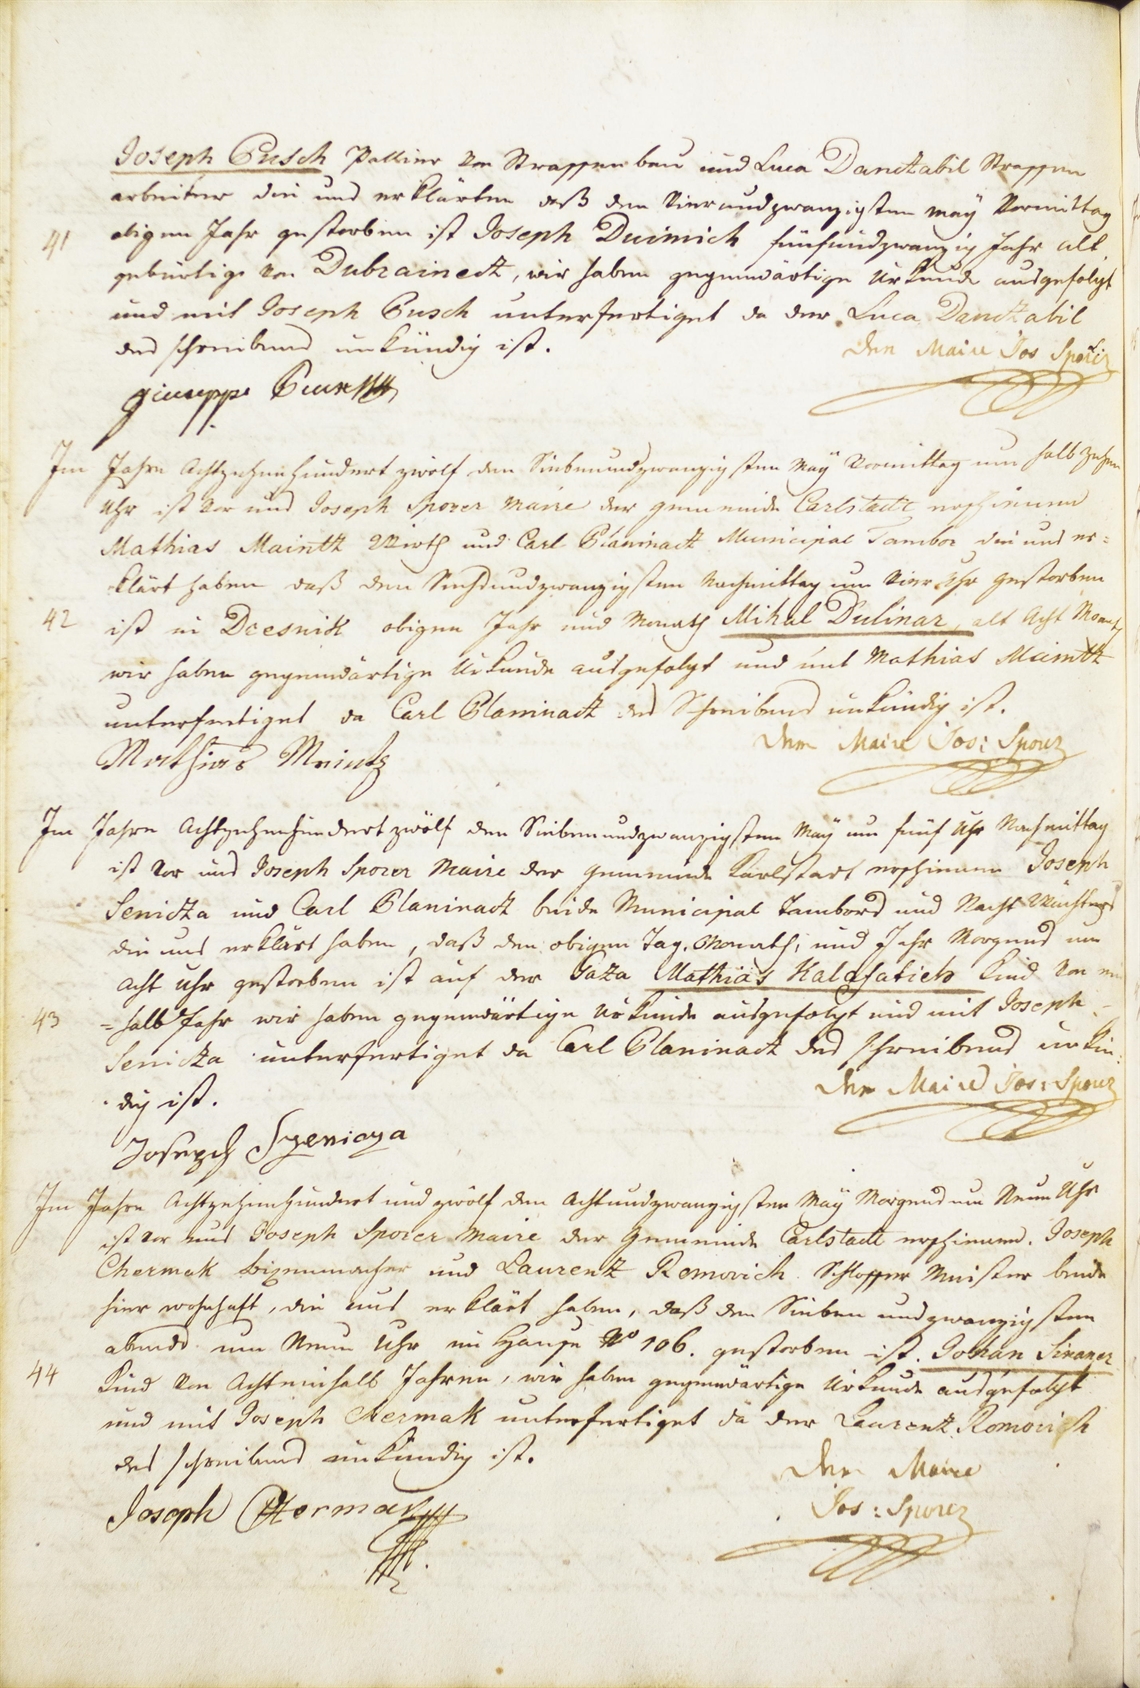 Joseph Cusch Pallier von Strassenbau und Luca Danctabil Strassen
arbeiter die uns erklärten daß den Vierundzwanzigsten may Vormittag
41 obigen Jahr gestorben ist Joseph Duimich fünfundzwanzig Jahr alt,
gebürtige von Dubrainect, wir haben gegenwärtige Urkunde ausgefolgt
und mit Joseph Cusch unterfertiget da der Luca Danctabil
des schreibens unkündig ist.
Der Maire Jos Sporer
Im Jahre Achtzehenhundert zwölf den Siebenundzwanzigsten Maÿ Vormittag um halb zehen
Uhr ist vor uns Joseph Sporer Maire der gemeinde Carlstadt erschienen
Mathias Maintz Wirth und Carl Planinactz Municipal Tambor die uns er=
klärt haben daß den Sechsundzwanzigsten Nachmittag um Vier Uhr gestorben
42 ist in Dresnik obigen Jahr und Monath Mihal Dulinar, alt Acht Monath
wir haben gegenwärtige Urkunde ausgefolgt und mit Mathias Maintz
unterfertiget da Carl Planinactz des Schreibens unkündig ist.
Der Maire Jos: Sporer
Mathias Maintz
Im Jahre Achtzehenhundert zwölf den Siebenundzwanzigsten Maÿ um fünf Uhr Nachmittag
ist vor uns Joseph Sporer Maire der gemeinde Karlstadt erschienen Joseph
Senicza und Carl Planinactz beide Municipal Tambord und Nacht Wächters
die uns erklärt haben, daß den obigen Tag, Monath, und Jahr Morgens um
Acht Uhr gestorben ist auf der Gaza Mathias Kalafatich Kind von ein
43 =halb Jahr wir haben gegenwärtige Urkunde ausgefolgt und mit Joseph
Senicza unterfertiget da Carl Planinactz des schreibens unkün=
dig ist.
Der Maire Jos: Sporer
Joseph Szenicza
Im Jahre Achtzehenhundert und zwölf den Achtundzwanzigsten Maÿ Morgens um Neun Uhr
ist vor uns Joseph Sporer Maire der Gemeinde Carlstadt erschienen. Joseph
Chermak und Laurentz Romovich Schlosser Meister beide
hier wohnhaft, die uns erklärt haben, daß den Sieben und zwanzigsten
abends um Neun Uhr im Hause No 106. gestorben ist. Johan Siraner
44 Kind von Achteinhalb Jahren, wir haben gegenwärtige Urkunde ausgefolgt
und mit Joseph Chermak unterfertiget da der Laurentz Romovich
des schreibens unkündig ist.
Der Maire
Jos: Sporer
Joseph Chermak